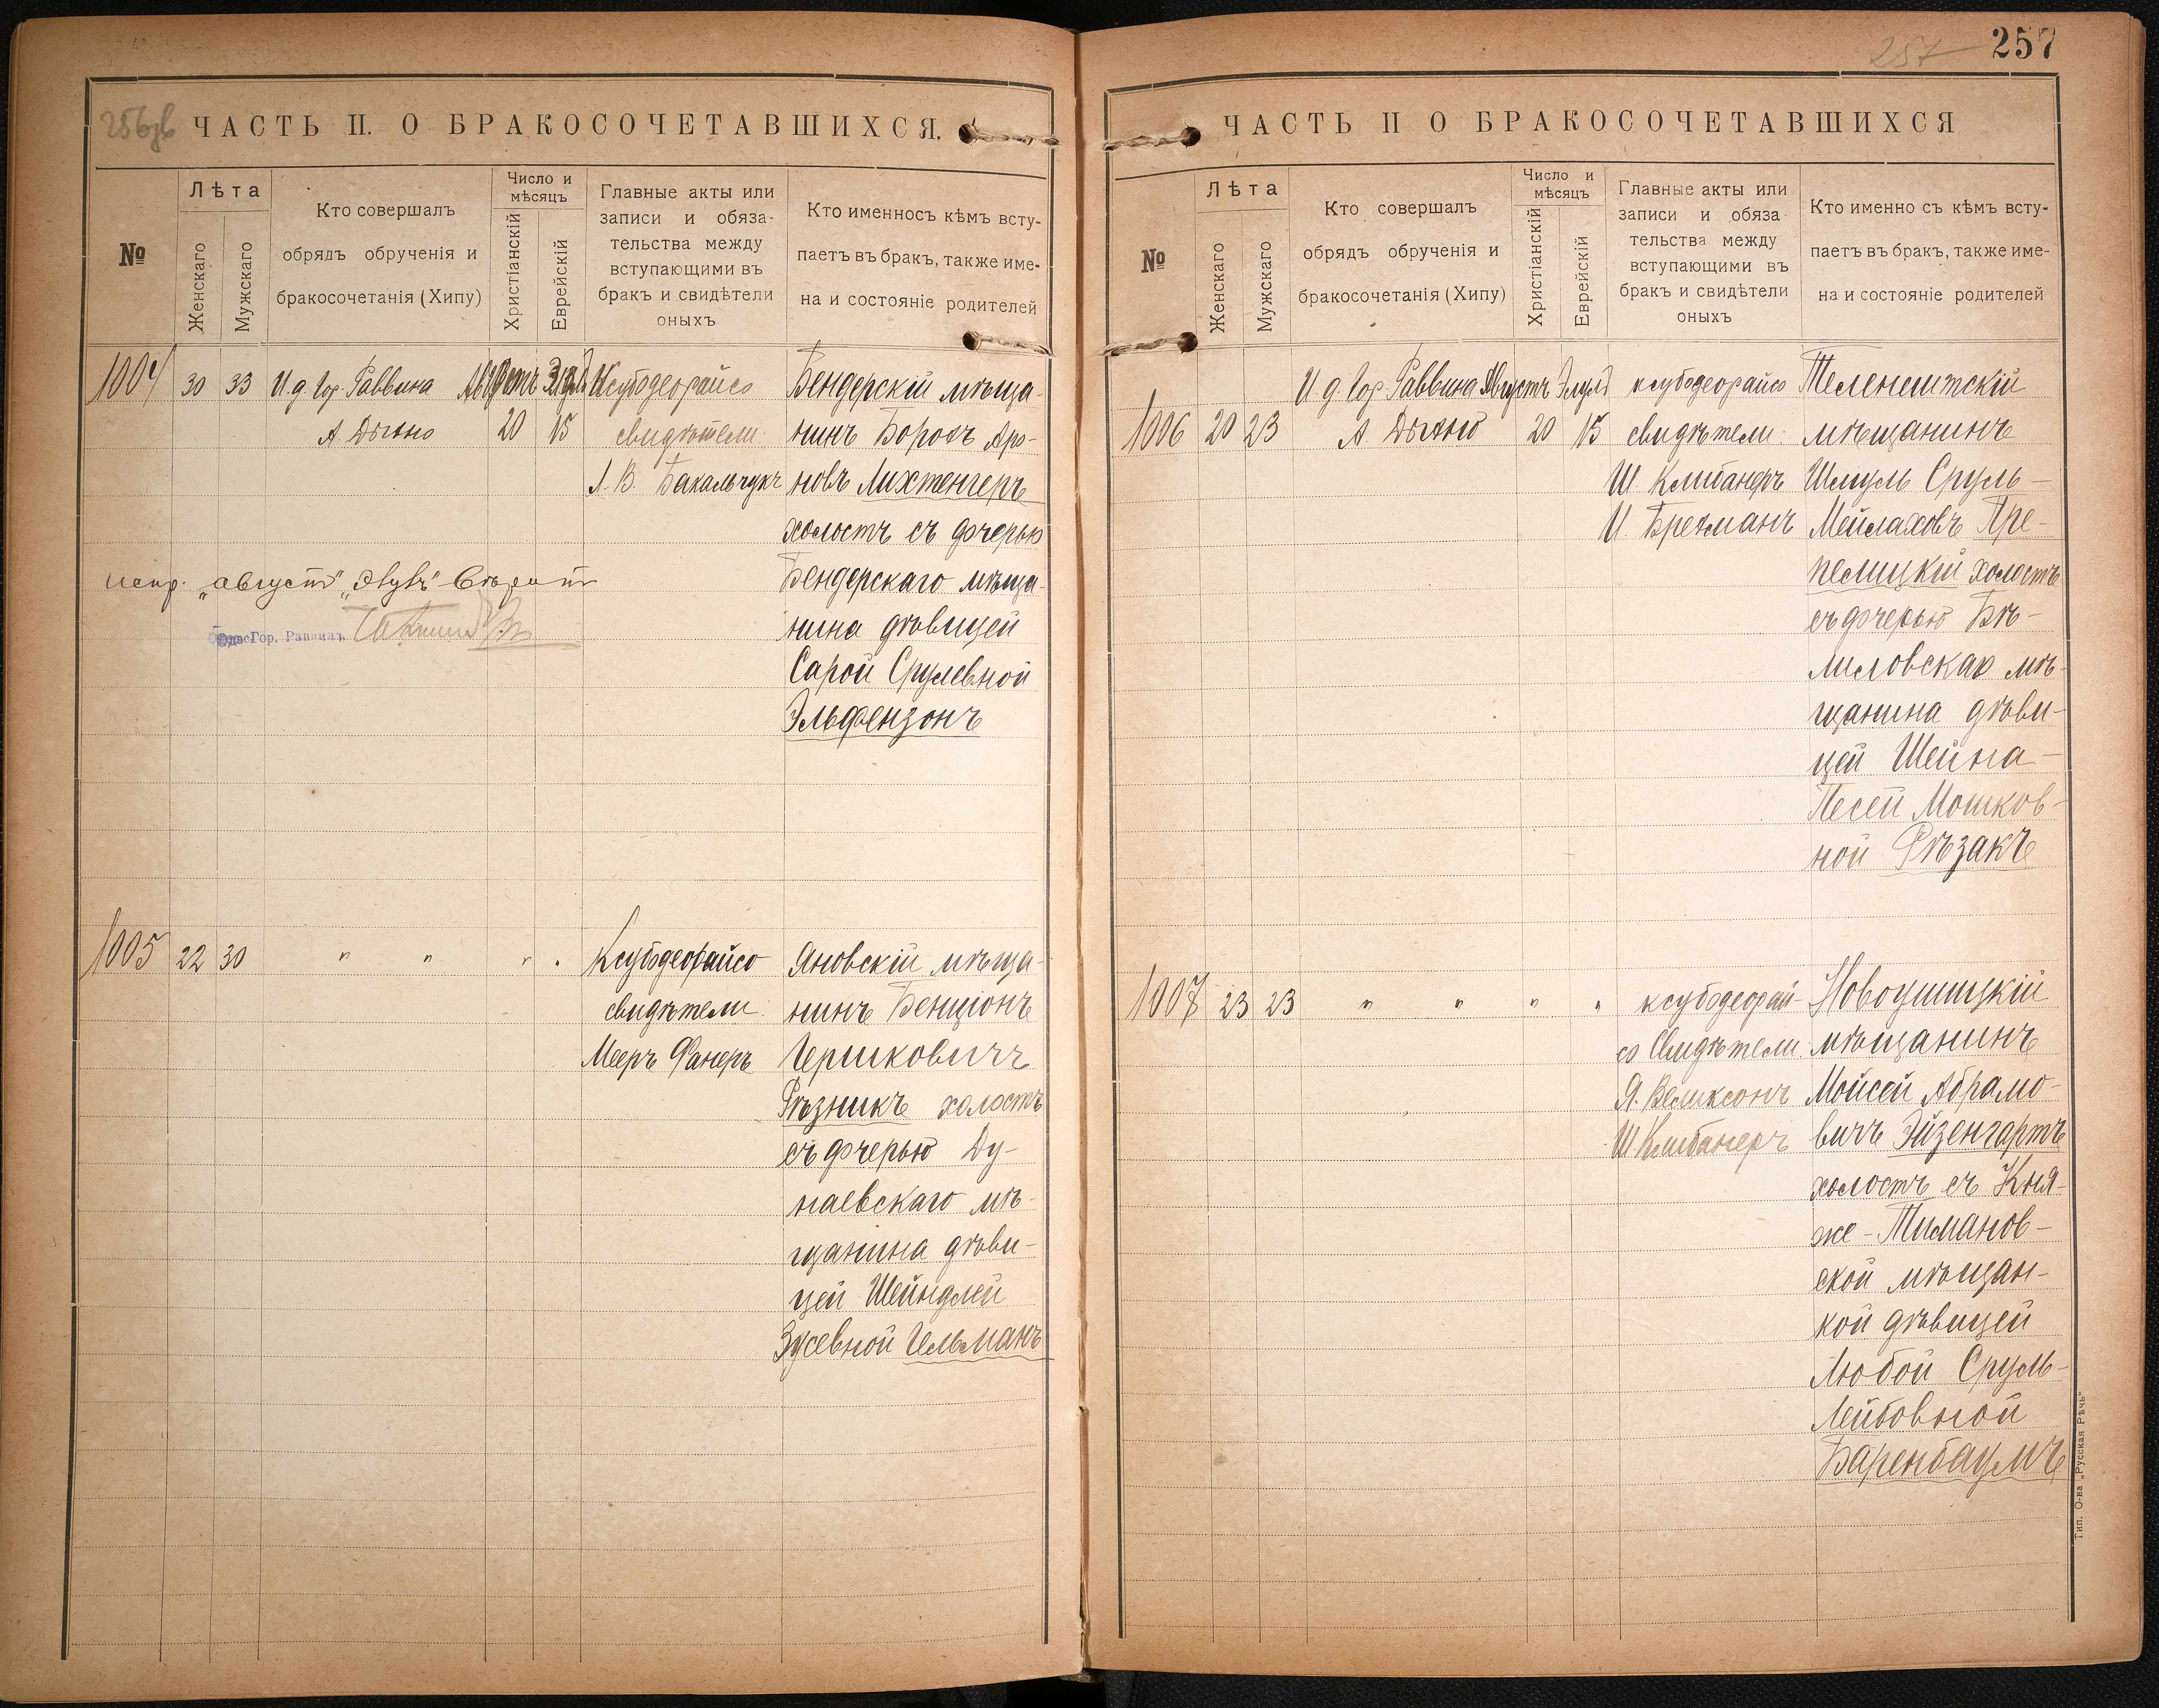 256зв
ЧАСТЬ II. О БРАКОСОЧЕТАВШИХСЯ.
№
Лѣта
Женскаго
Мужскаго
Кто совершалъ
обрядъ обрученія и
бракосочетанія (Хипу)
Число и
мѣсяцъ
Христіанскій
Еврейскій
Главные акты или
записи и обяза-
тельства между
вступающими въ
бракъ и свидѣтели
оныхъ
Кто именносъ кѣмъ всту-
паетъ въ бракъ, также име-
на и состояніе родителей
1004 30 33 И.д. Гор. Раввина Августъ Элулъ Ксубодеорайсо
А. Дыхно 20 15 свидѣтели:
Л. В. Бакальчукъ
Бендерскій мѣща-
нинъ Борохъ Аро-
новъ Лихтенгеръ
холостъ съ дочерью
Бендерскаго мѣща-
нина дѣвицей
Сарой Срулевной
Эльфензонъ
испр. „августъ" „Элулъ" вѣрить
Гор. Раввинъ
1005 22 30 " " " " Ксубодеорайсо
свидѣтели:
Мееръ Фанеръ
Яновскій мѣща-
нинъ Бенціонъ
Гершковичъ
Рѣзникъ холостъ
съ дочерью Ду-
наевскаго мѣ-
щанина дѣви-
цей Шейндлей
Зусевной Гельманъ
257
257
ЧАСТЬ II О БРАКОСОЧЕТАВШИХСЯ
№
Лѣта
Женскаго
Мужскаго
Кто совершалъ
обрядъ обрученія и
бракосочетанія (Хипу)
Число и
мѣсяцъ
Христіанскій
Еврейскій
Главные акты или
записи и обяза
тельства между
вступающими въ
бракъ и свидѣтели
оныхъ
Кто именно съ кѣмъ всту-
паетъ въ бракъ, также име-
на и состояніе родителей
И.д. Гор. Раввина Августъ Элулъ ксубодеорайсо
1006 20 23 А. Дыхно 20 15 свидѣтели:
Ш. Клибанеръ
И. Брехманъ
Теленештскій
мѣщанинъ
Шмуль Сруль-
Мейлаховъ Пре-
пелицкій холостъ
съ дочерью Бѣ-
лиловскаго мѣ-
щанина дѣви-
цей Шейна-
Песей Мошков-
ной Рѣзакъ
1007 23 23 " " " " ксубодеорай-
со Свидѣтели:
Я. Великсонъ
Ш Клибанеръ
Новоушицкій
мѣщанинъ
Мойсей Абрамо-
вичъ Эйзенгартъ
холостъ съ Кня-
же-Тиманов-
ской мѣщан-
кой дѣвицей
Любой Сруль-
Лейбовной
Баренбаумъ
Тип. О-ва „Русская Рѣчь"